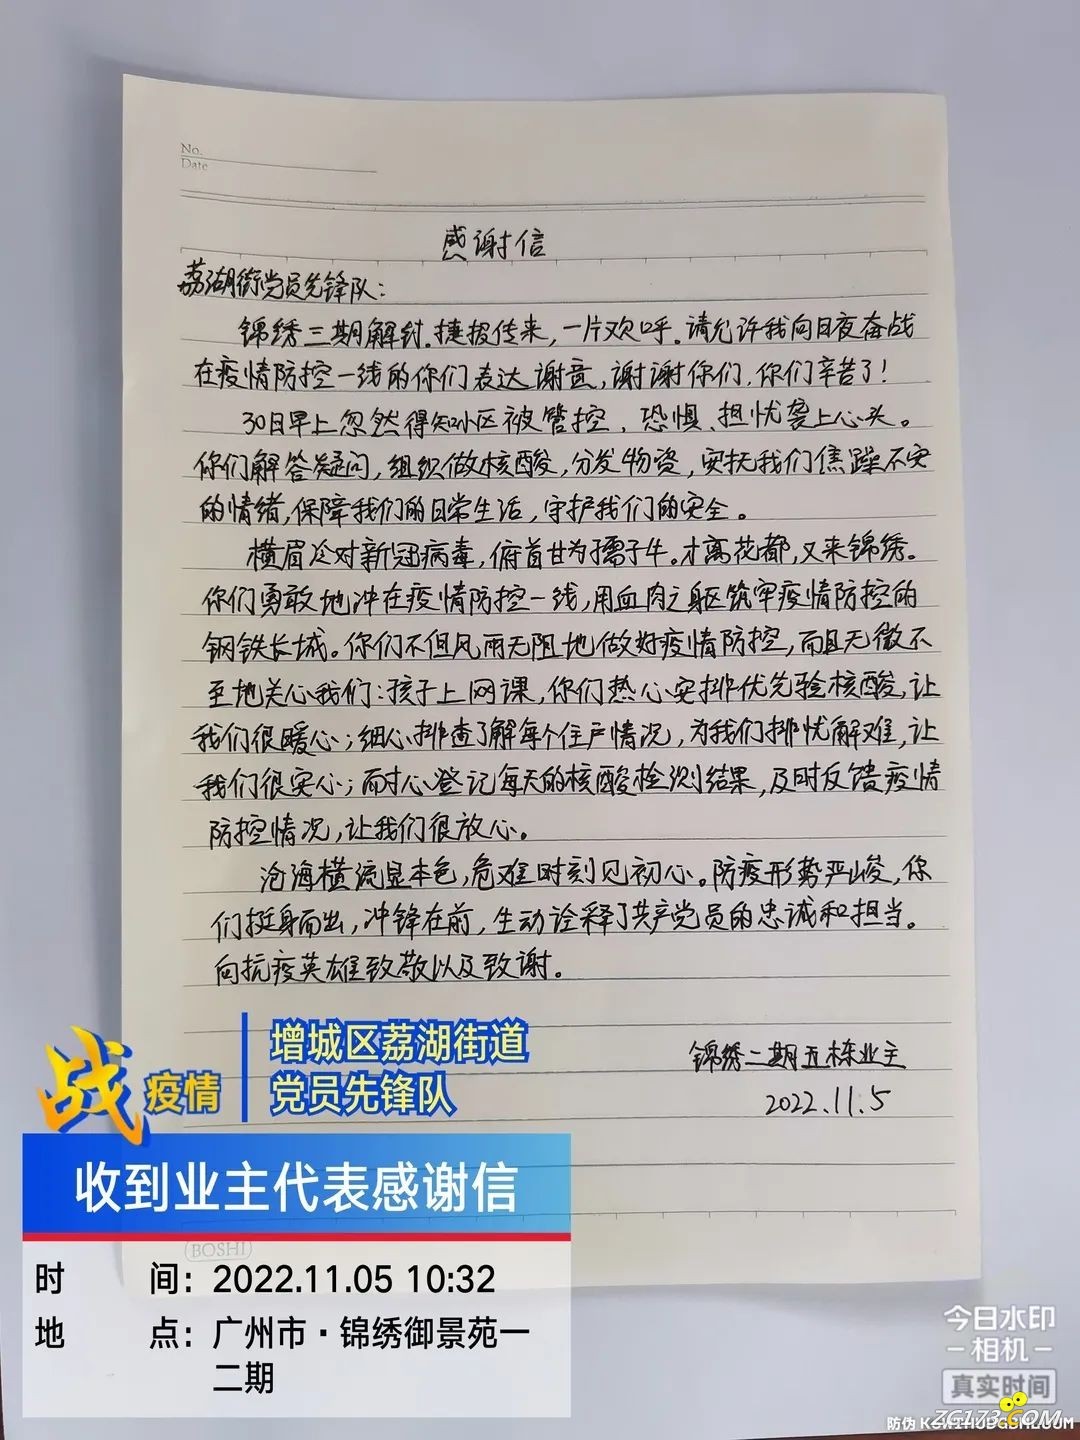 No.
Date
感谢信
荔湖街党员先锋队：
锦绣三期解封.捷报传来，一片欢呼。请允许我向日夜奋战
在疫情防控一线的你们表达谢意，谢谢你们，你们辛苦了！
30日早上忽然得知小区被管控，恐惧、担忧袭上心头。
你们解答疑问，组织做核酸，分发物资，安抚我们焦躁不安
的情绪，保障我们的日常生活，守护我们的安全。
横眉冷对新冠病毒，俯首甘为孺子牛。才离花都，又来锦绣。
你们勇敢地冲在疫情防控一线，用血肉之躯筑牢疫情防控的
钢铁长城。你们不但风雨无阻地做好疫情防控，而且无微不
至地关心我们：孩子上网课，你们热心安排优先验核酸，让
我们很暖心；细心排查了解每个住户情况，为我们排忧解难，让
我们很安心；耐心登记每天的核酸检测结果，及时反馈疫情
防控情况，让我们很放心。
沧海横流显本色，危难时刻见初心。防疫形势严峻，你
们挺身而出，冲锋在前，生动诠释了共产党员的忠诚和担当。
向抗疫英雄致敬以及致谢。
锦绣二期五栋业主
2022.11.5
战疫情
增城区荔湖街道
党员先锋队
收到业主代表感谢信
BOSHI
时 间：2022.11.05 10:32
地 点：广州市·锦绣御景苑一
二期
今日水印
相机
真实时间
防伪
ZG173.COM